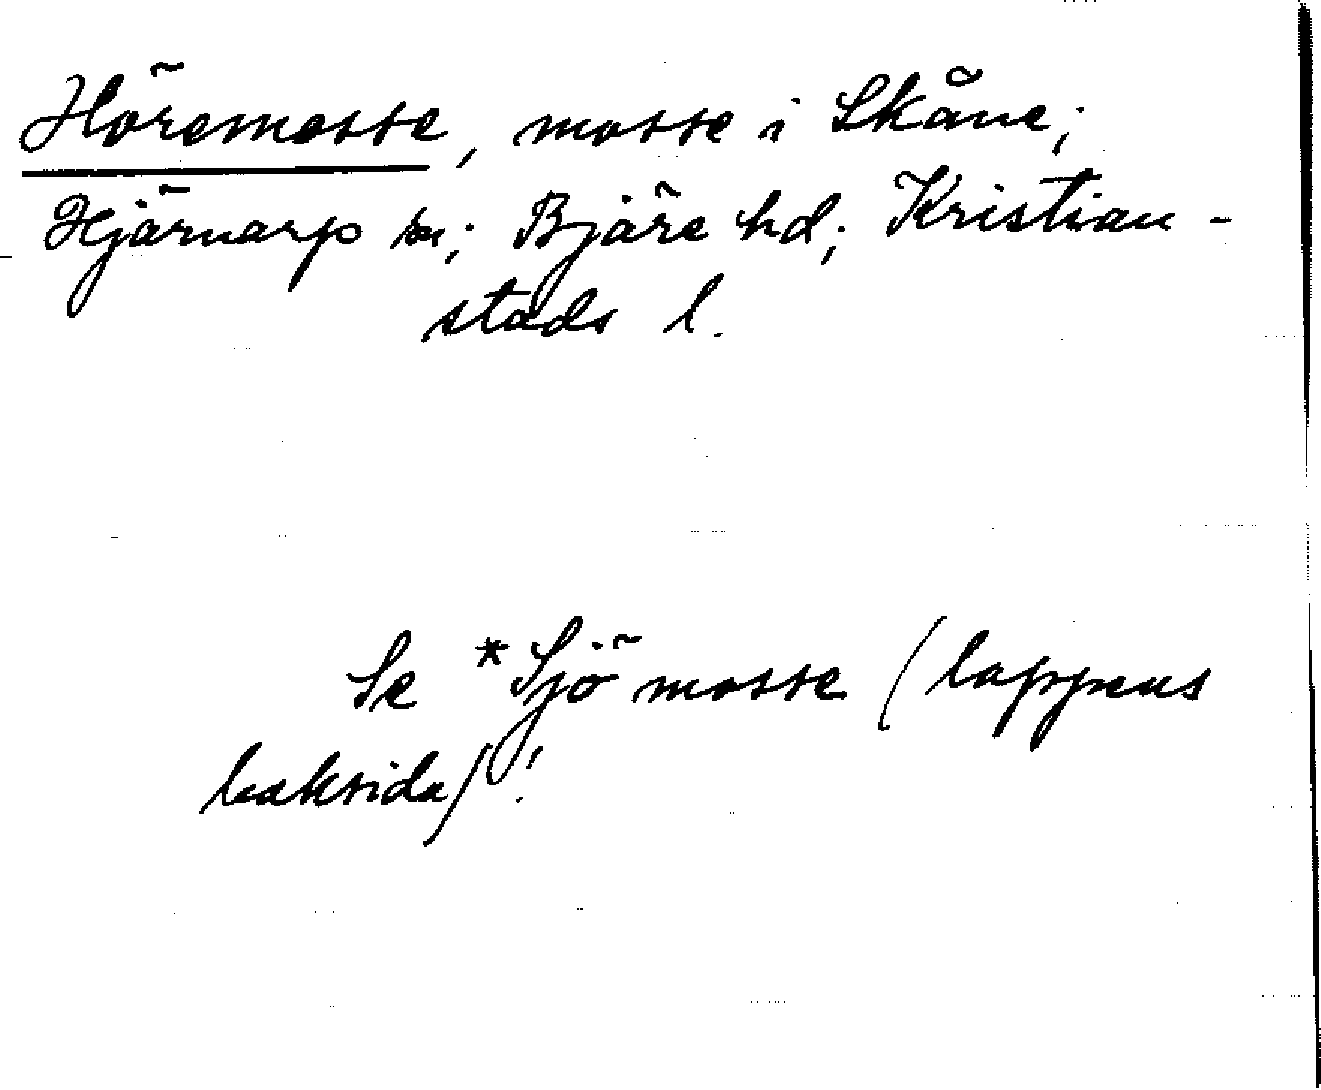 Höremosse, mosse i Skåne;
Hjärnarp sn; Bjäre hd; Kristian-
stads l.
Se *Sjömosse (lappens
baksida)!